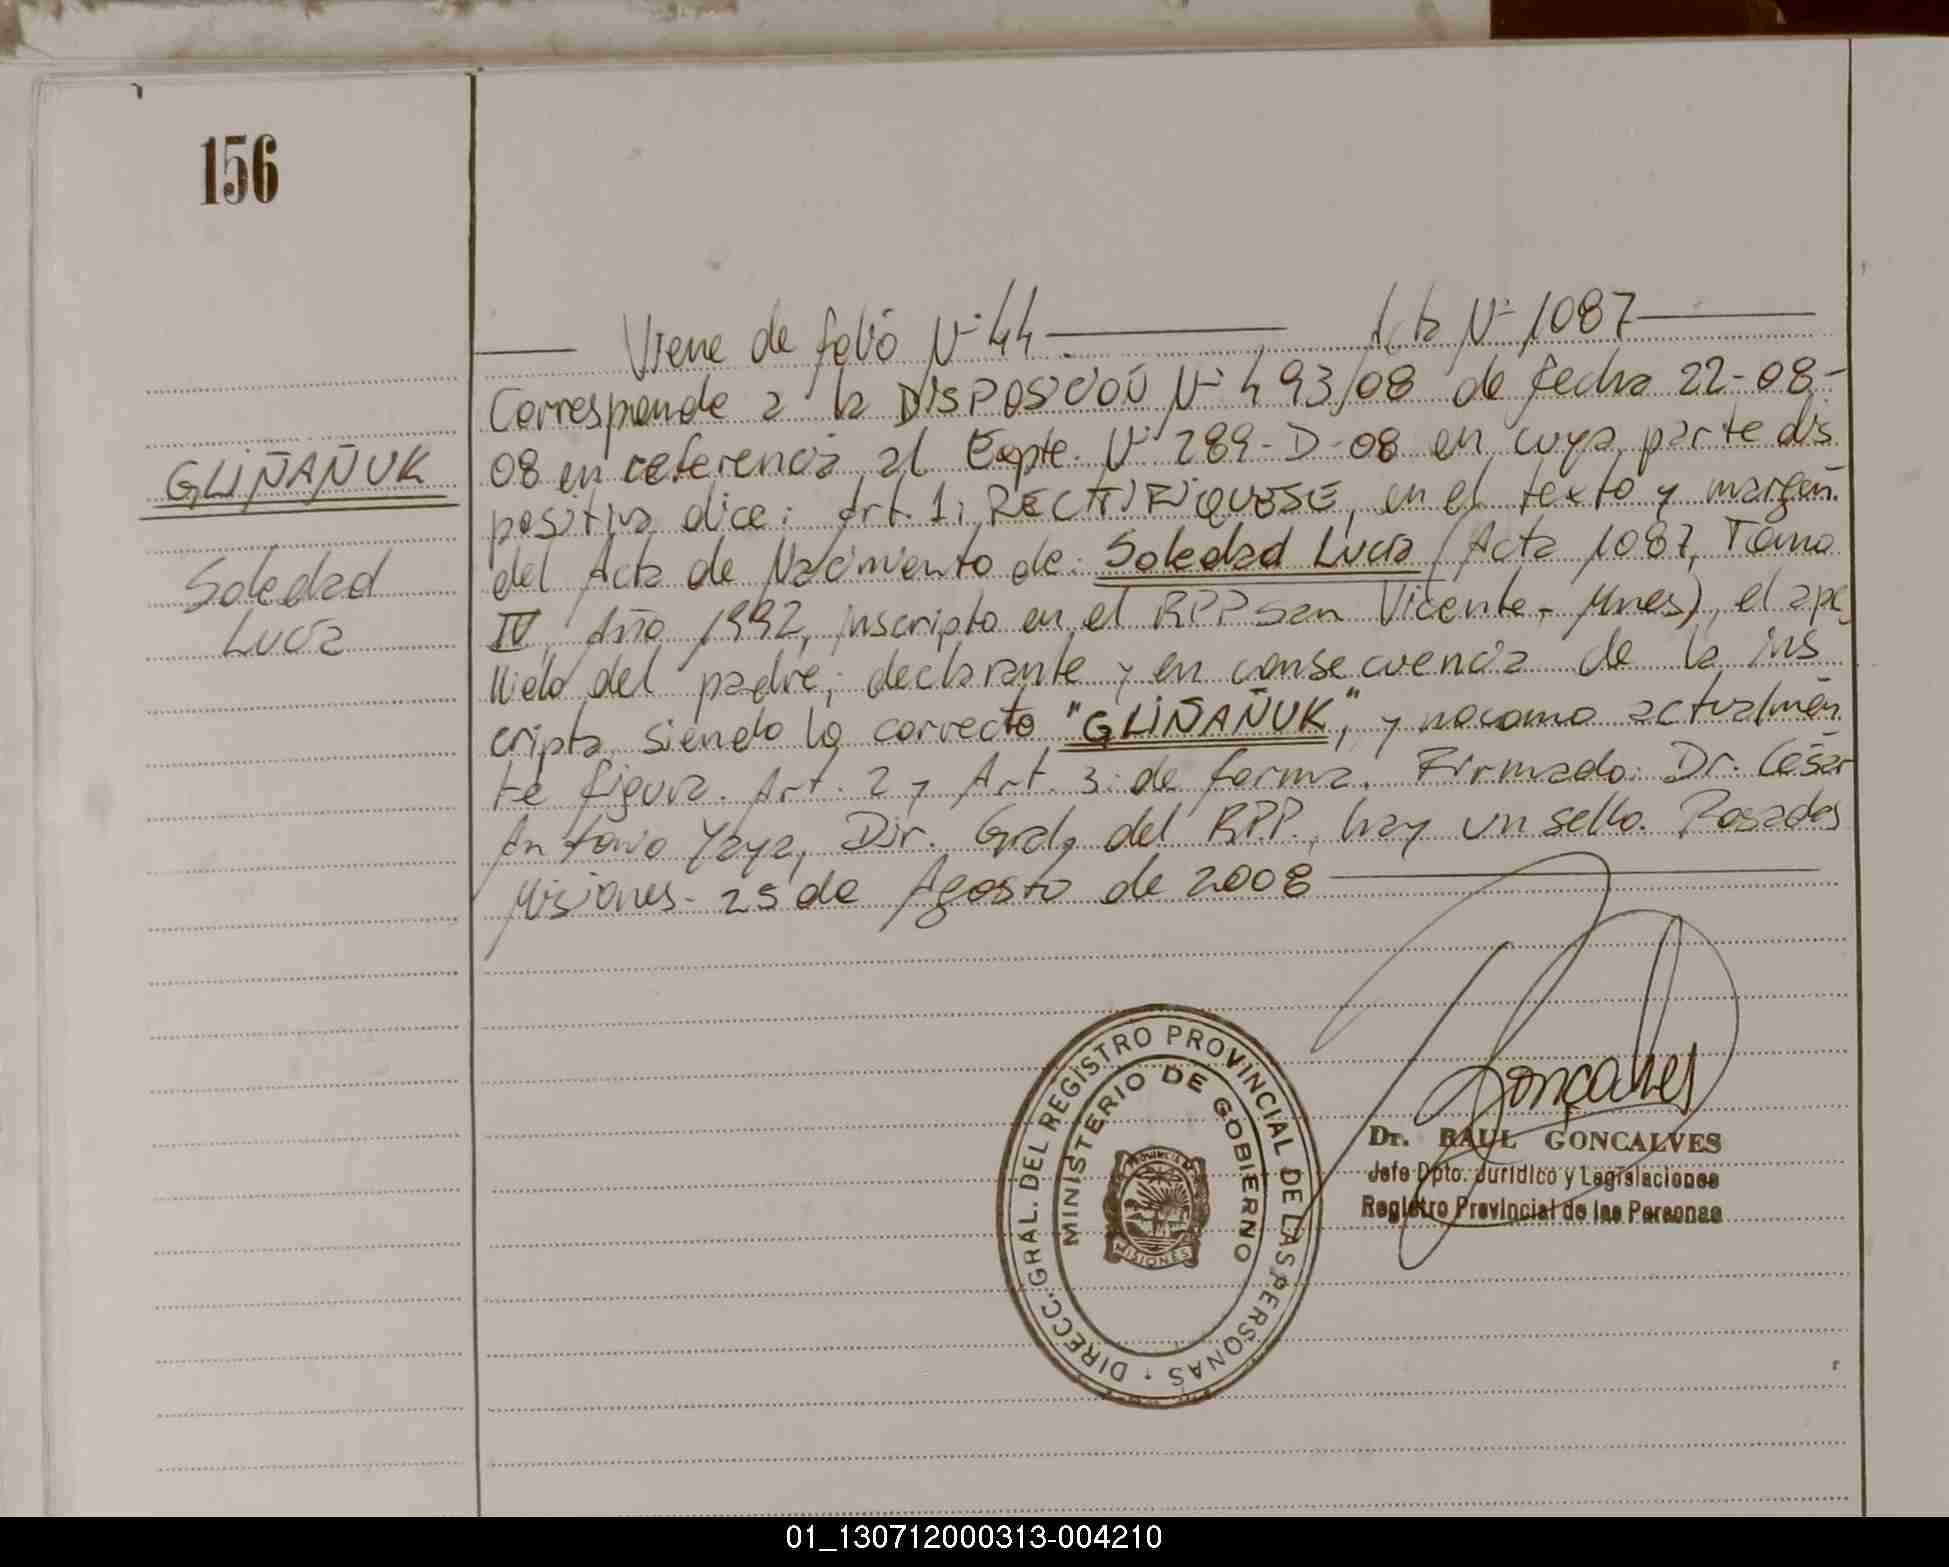 156
Viene de folio Nº 44 Acta Nº 1087
Corresponde a la DISPOSICIÓN Nº 493/08 de fecha 22-08-
08 en referencia al Expte. Nº 289-D-08 en cuya parte dis
GLIÑAÑUK
positiva dice: Art. 1: RECTIFIQUESE, en el texto y margen
del Acta de Nacimiento de: Soledad Lucía (Acta 1087, Tomo
Soledad
IV, Año 1992, inscripto en el RPP San Vicente - Mnes), el ape
Lucía
llido del padre, declarante y en consecuencia de la ins
cripta siendo lo correcto "GLIÑAÑUK", y no como actualmen
te figura. Art. 2 y Art. 3: de forma. Firmado: Dr. César
Antonio Yaya, Dir. Gral. del RPP., hay un sello. Posadas
Misiones - 25 de Agosto de 2008
Goncalves
DIRECC. GRAL. DEL REGISTRO PROVINCIAL DE LAS PERSONAS
MINISTERIO DE GOBIERNO
PROVINCIA DE
MISIONES
Dr. RAUL GONCALVES
Jefe Dpto. Jurídico y Legislaciones
Registro Provincial de las Personas
01_130712000313-004210